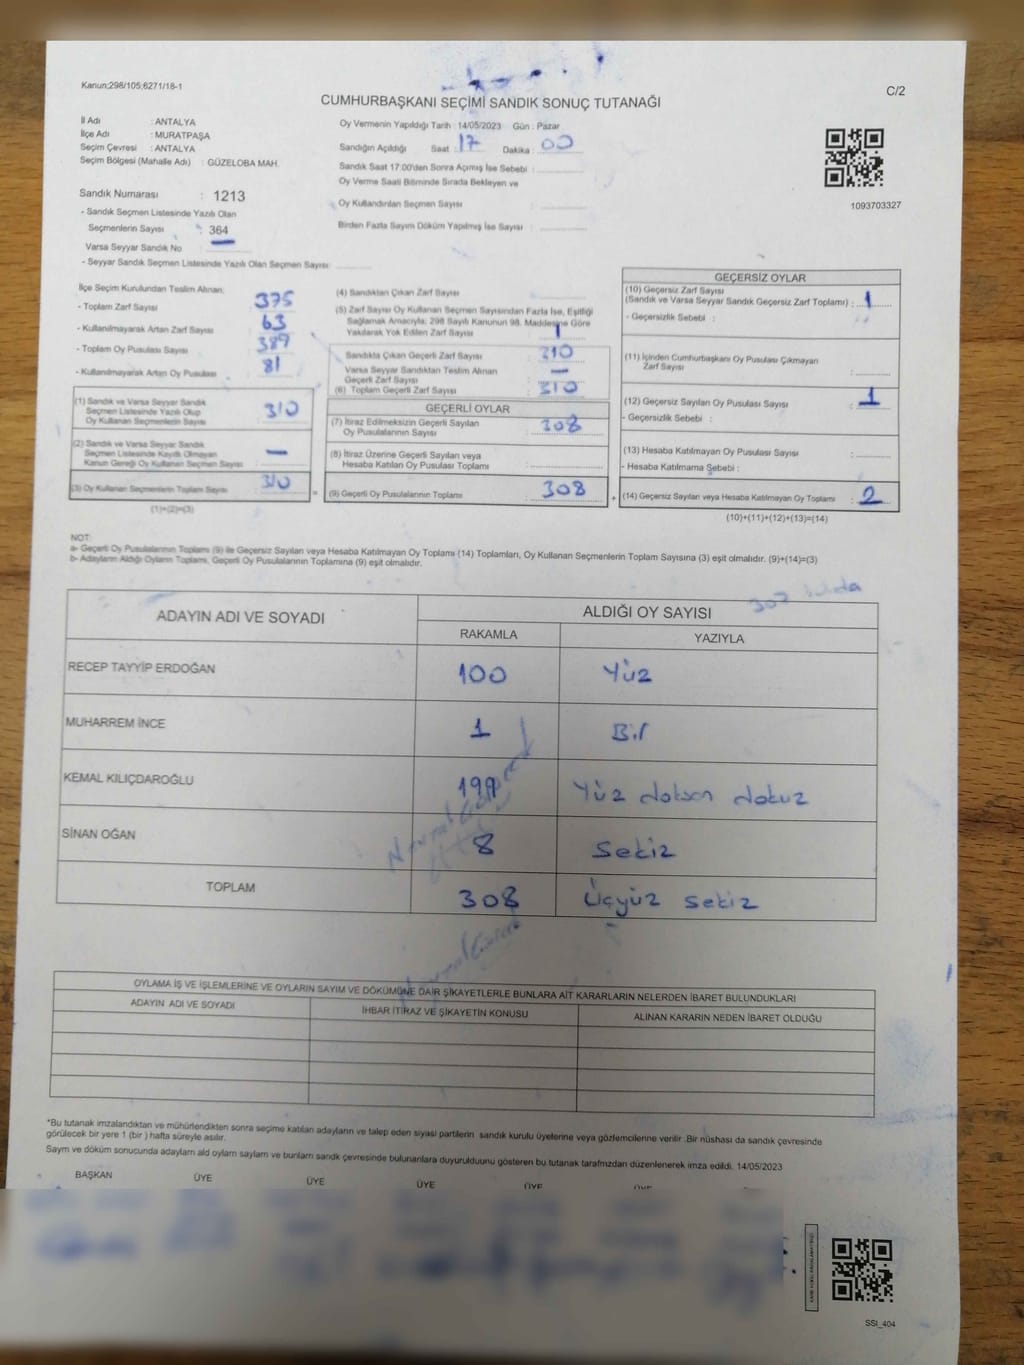 Kanun;298/105,6271/18-1
C/2
CUMHURBAŞKANI SEÇİMİ SANDIK SONUÇ TUTANAĞI
İl Adı : ANTALYA
İlçe Adı : MURATPAŞA
Seçim Çevresi : ANTALYA
Seçim Bölgesi (Mahalle Adı) : GÜZELOBA MAH.
Sandık Numarası : 1213
- Sandık Seçmen Listesinde Yazılı Olan
Seçmenlerin Sayısı : 364
Varsa Seyyar Sandık No
- Seyyar Sandık Seçmen Listesinde Yazılı Olan Seçmen Sayısı:
Oy Vermenin Yapıldığı Tarih : 14/05/2023 Gün : Pazar
Sandığın Açıldığı Saat : 17 Dakika : 00
Sandık Saat 17:00'den Sonra Açılmış İse Sebebi :
Oy Verme Saati Bitiminde Sırada Bekleyen ve
Oy Kullandırılan Seçmen Sayısı :
Birden Fazla Sayım Döküm Yapılmış İse Sayısı :
1093703327
İlçe Seçim Kurulundan Teslim Alınan:
- Toplam Zarf Sayısı : 375
- Kullanılmayarak Artan Zarf Sayısı : 63
- Toplam Oy Pusulası Sayısı : 389
- Kullanılmayarak Artan Oy Pusulası : 81
(1) Sandık ve Varsa Seyyar Sandık
Seçmen Listesinde Yazılı Olup
Oy Kullanan Seçmenlerin Sayısı : 310
(2) Sandık ve Varsa Seyyar Sandık
Seçmen Listesinde Kayıtlı Olmayan
Kanun Gereği Oy Kullanan Seçmen Sayısı : —
(3) Oy Kullanan Seçmenlerin Toplam Sayısı : 310
(1)+(2)=(3)
(4) Sandıktan Çıkan Zarf Sayısı :
(5) Zarf Sayısı Oy Kullanan Seçmen Sayısından Fazla İse, Eşitliği
Sağlamak Amacıyla, 298 Sayılı Kanunun 98. Maddesine Göre
Yakılarak Yok Edilen Zarf Sayısı : 1
Sandıkta Çıkan Geçerli Zarf Sayısı : 310
Varsa Seyyar Sandıktan Teslim Alınan
Geçerli Zarf Sayısı : —
(6) Toplam Geçerli Zarf Sayısı : 310
GEÇERLİ OYLAR
(7) İtiraz Edilmeksizin Geçerli Sayılan
Oy Pusulalarının Sayısı : 308
(8) İtiraz Üzerine Geçerli Sayılan veya
Hesaba Katılan Oy Pusulası Toplamı :
= (9) Geçerli Oy Pusulalarının Toplamı : 308 +
GEÇERSİZ OYLAR
(10) Geçersiz Zarf Sayısı
(Sandık ve Varsa Seyyar Sandık Geçersiz Zarf Toplamı) : 1
- Geçersizlik Sebebi :
(11) İçinden Cumhurbaşkanı Oy Pusulası Çıkmayan
Zarf Sayısı :
(12) Geçersiz Sayılan Oy Pusulası Sayısı : 1
- Geçersizlik Sebebi :
(13) Hesaba Katılmayan Oy Pusulası Sayısı :
- Hesaba Katılmama Sebebi :
(14) Geçersiz Sayılan veya Hesaba Katılmayan Oy Toplamı : 2
(10)+(11)+(12)+(13)=(14)
NOT:
a- Geçerli Oy Pusulalarının Toplamı (9) ile Geçersiz Sayılan veya Hesaba Katılmayan Oy Toplamı (14) Toplamları, Oy Kullanan Seçmenlerin Toplam Sayısına (3) eşit olmalıdır. (9)+(14)=(3)
b- Adayların Aldığı Oyların Toplamı, Geçerli Oy Pusulalarının Toplamına (9) eşit olmalıdır.
ADAYIN ADI VE SOYADI ALDIĞI OY SAYISI
RAKAMLA YAZIYLA
RECEP TAYYİP ERDOĞAN 100 Yüz
MUHARREM İNCE 1 Bir
KEMAL KILIÇDAROĞLU 199 Yüz doksan dokuz
SİNAN OĞAN 8 Sekiz
TOPLAM 308 Üçyüz sekiz
OYLAMA İŞ VE İŞLEMLERİNE VE OYLARIN SAYIM VE DÖKÜMÜNE DAİR ŞİKAYETLERLE BUNLARA AİT KARARLARIN NELERDEN İBARET BULUNDUKLARI
ADAYIN ADI VE SOYADI İHBAR İTİRAZ VE ŞİKAYETİN KONUSU ALINAN KARARIN NEDEN İBARET OLDUĞU
*Bu tutanak imzalandıktan ve mühürlendikten sonra seçime katılan adayların ve talep eden siyasi partilerin sandık kurulu üyelerine veya gözlemcilerine verilir .Bir nüshası da sandık çevresinde
görülecek bir yere 1 (bir ) hafta süreyle asılır.
Sayım ve döküm sonucunda adayların ald oyların sayıları ve bunların sandk çevresinde bulunanlara duyurulduunu gösteren bu tutanak tarafmzdan düzenlenerek imza edildi. 14/05/2023
BAŞKAN ÜYE ÜYE ÜYE ÜYE ÜYE
SSI_404